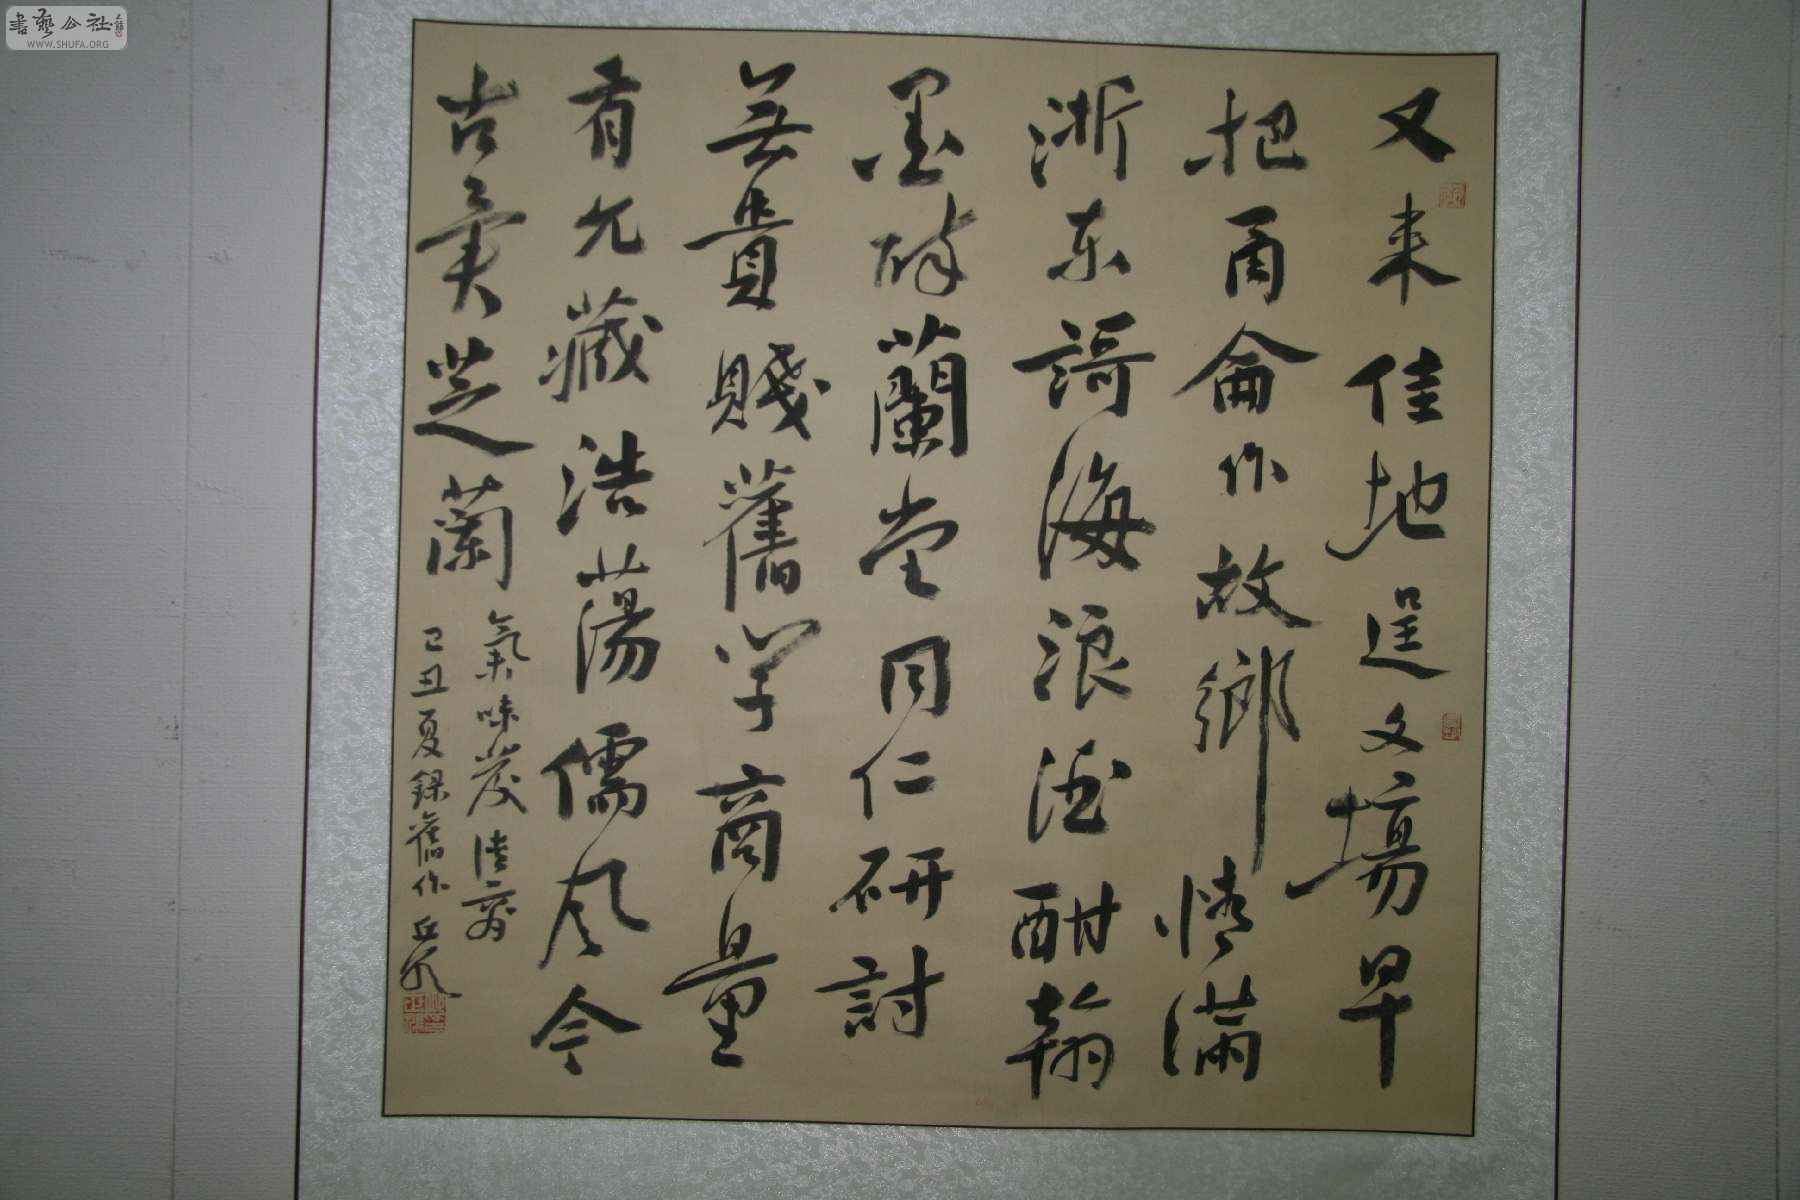 又来佳地逞文場早
把甬侖作故鄉情满
浙东謌海浪洒酣翰
墨醉蘭堂同仁研討
无貴賤舊学商量
有允藏浩蕩儒风今
古奐芝蘭
氣味发清
己丑夏録舊作丘
書藝公社
WWW.SHUFA.ORG